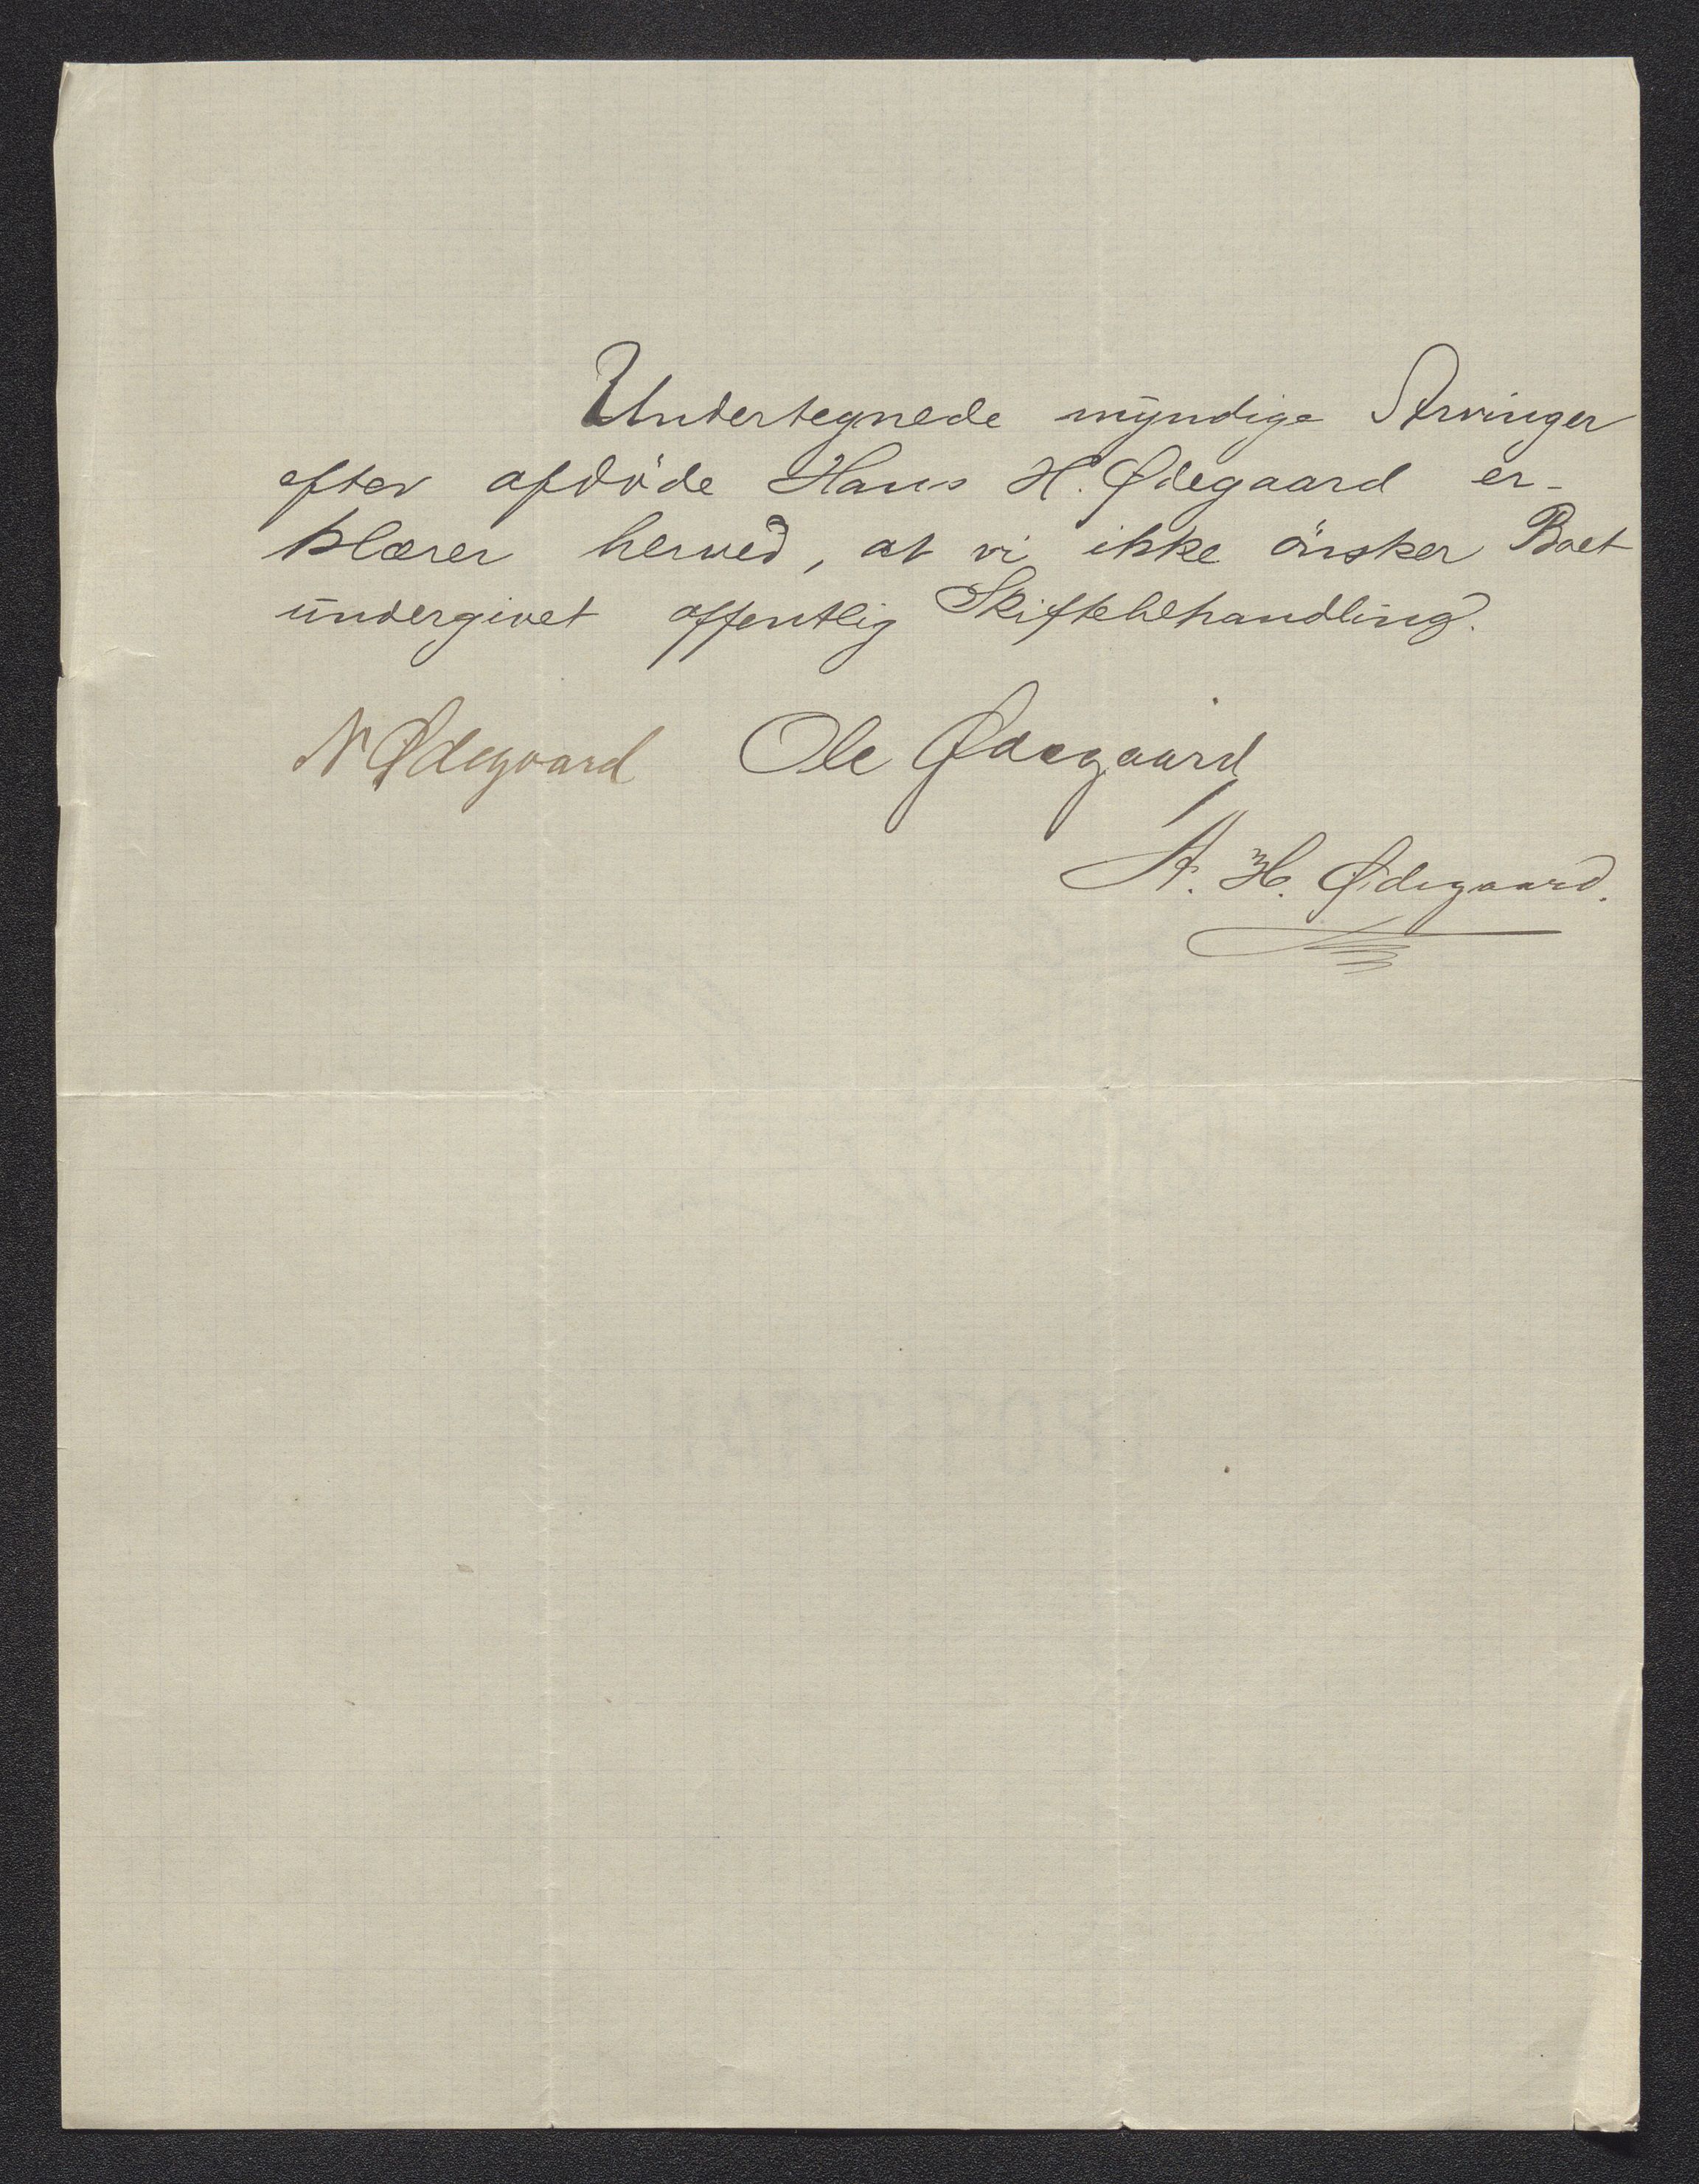 Undertegnede myndige Arvinger
efter afdöde Hans H. Ødegaard er-
klærer herved, at vi ikke önsker Boet
undergivet offentlig Skiftebehandling.
N Ødegaard Ole Ødegaard
A. H. Ødegaard.